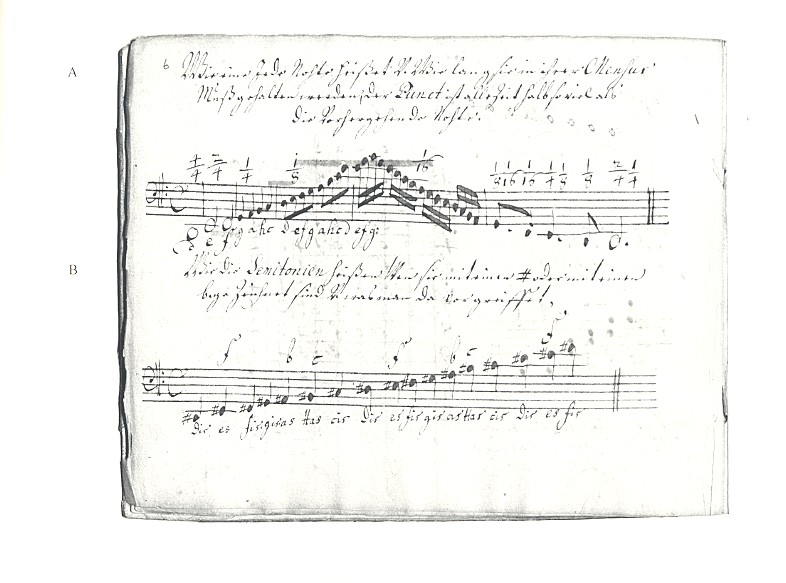 A
6 Wie eine Jede Nohte heißet v. Wie lang sie in ihrer Mensur
Muß gehalten werden, der Punct ist alle Zeit halb so viel als
die Vorhergehende Nohte.
4/4 2/4 1/4 1/8 1/16 1/8 1/16 1/16 1/4 1/8 1/8 2/4 1/4
g a h c d e f g a h c d e f g
e f
B
Wie die Semitonien heißen Wen sie mit einem # oder mit einem
b gezeichnet sind v. was man da vor greiffet.
F b c F b c F
Dis es fis gis as Has cis Dis es fis gis as Has cis Dis es fis